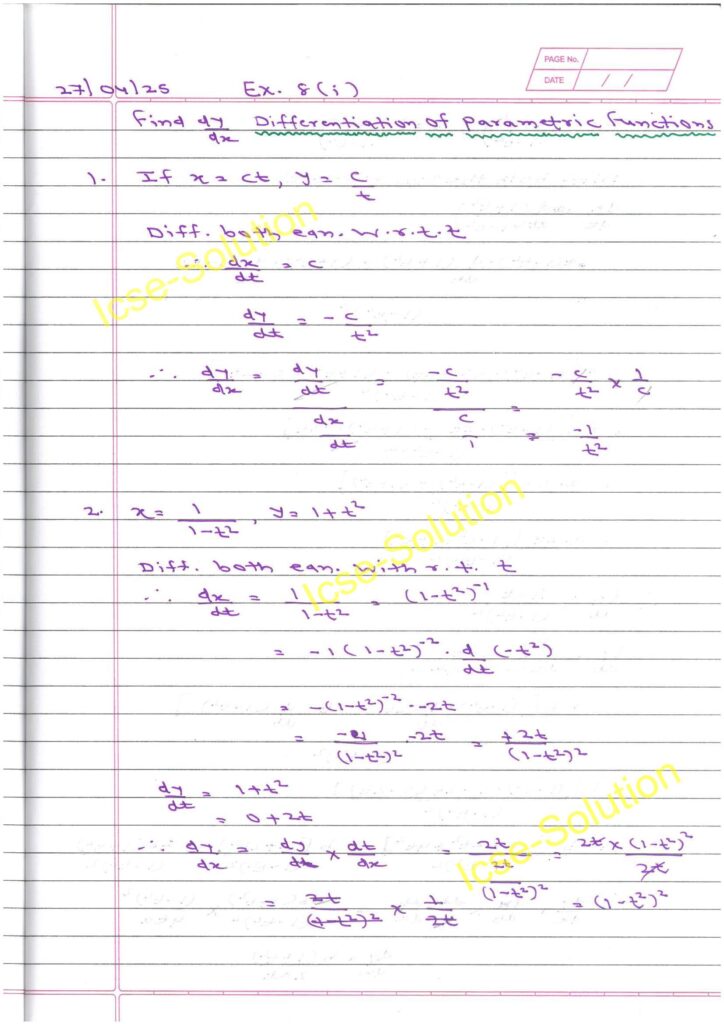 PAGE No.
DATE / /
27/04/25 Ex. 8(i)
Find dy/dx Differentiation of Parametric Functions
1. If x = ct, y = c/t
Diff. both eqn. w.r.t. t
∴ dx/dt = c
dy/dt = - c/t²
∴ dy/dx = (dy/dt)/(dx/dt) = (-c/t²)/(c/1) = - c/t² × 1/c
= -1/t²
2. x = 1/(1-t²), y = 1+t²
Diff. both eqn. with r. t. t
∴ dx/dt = 1/(1-t²) = (1-t²)⁻¹
= -1(1-t²)⁻² . d/dt (-t²)
= -(1-t²)⁻² . -2t
= -1/(1-t²)² . -2t = +2t/(1-t²)²
dy/dt = 1+t²
= 0+2t
∴ dy/dx = dy/dt × dt/dx = 2t/(2t/(1-t²)²) = 2t × (1-t²)²/2t
= 2t/(1-t²)² × 1/2t = (1-t²)²
Icse-Solution
Icse-Solution
Icse-Solution